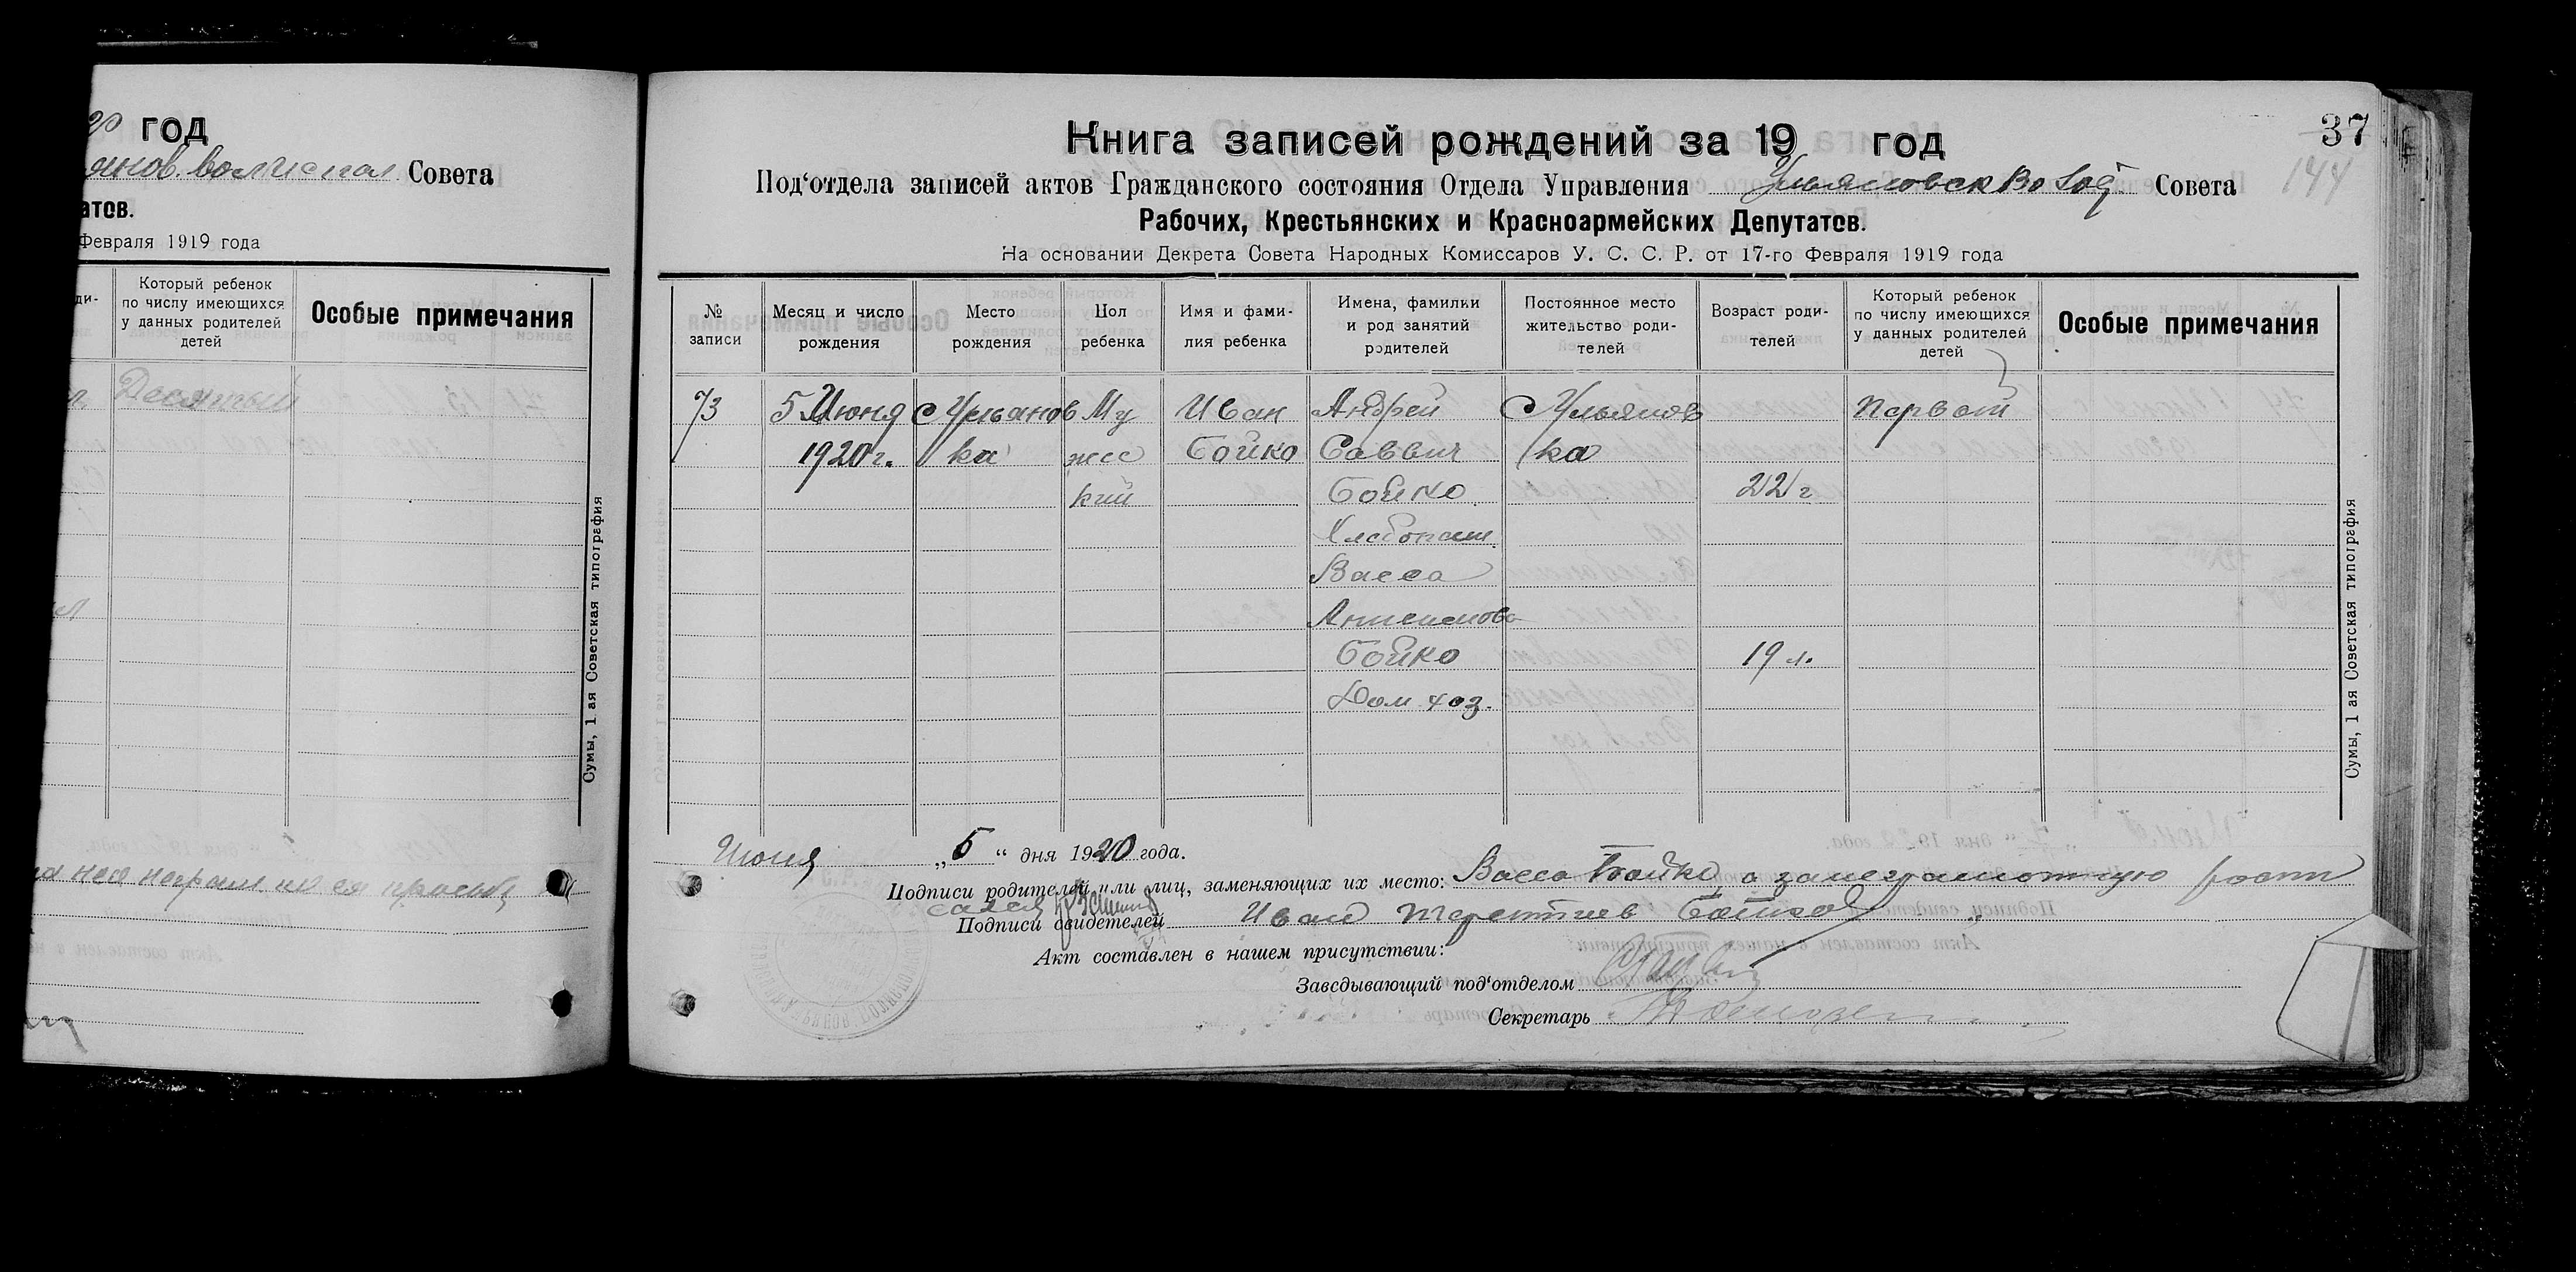 год
Совета
атов.
Февраля 1919 года
ди-
Который ребенок
по числу имеющихся
у данных родителей
детей
Особые примечания
Десятый
Сумы, 1 ая Советская типография
37
144
Книга записей рождений за 19 год
Под‘отдела записей актов Гражданского состояния Отдела Управления Ульяновск Совета
Рабочих, Крестьянских и Красноармейских Депутатов.
На основании Декрета Совета Народных Комиссаров У. С. С. Р. от 17-го Февраля 1919 года
№
записи
Месяц и число
рождения
Место
рождения
Пол
ребенка
Имя и фами-
лия ребенка
Имена, фамилии
и род занятий
родителей
Постоянное место
жительство роди-
телей
Возраст роди-
телей
Который ребенок
по числу имеющихся
у данных родителей
детей
Особые примечания
73 5 Июня с Ульянов Му Иван Андрей с Ульянов Первый
1920 г. ка жес Бойко Саввич ка
кий Бойко 22 г
Хлебопаш.
Васса
Бойко 19 л.
Дом хоз.
Сумы, 1 ая Советская типография
Июня „5“ дня 1920 года.
Подписи родителей или лиц, заменяющих их место: Васса Бойко а за неграмотную
Подписи свидетелей Иван Терентиев Бойко
Акт составлен в нашем присутствии:
Заведывающий под‘отделом
Секретарь